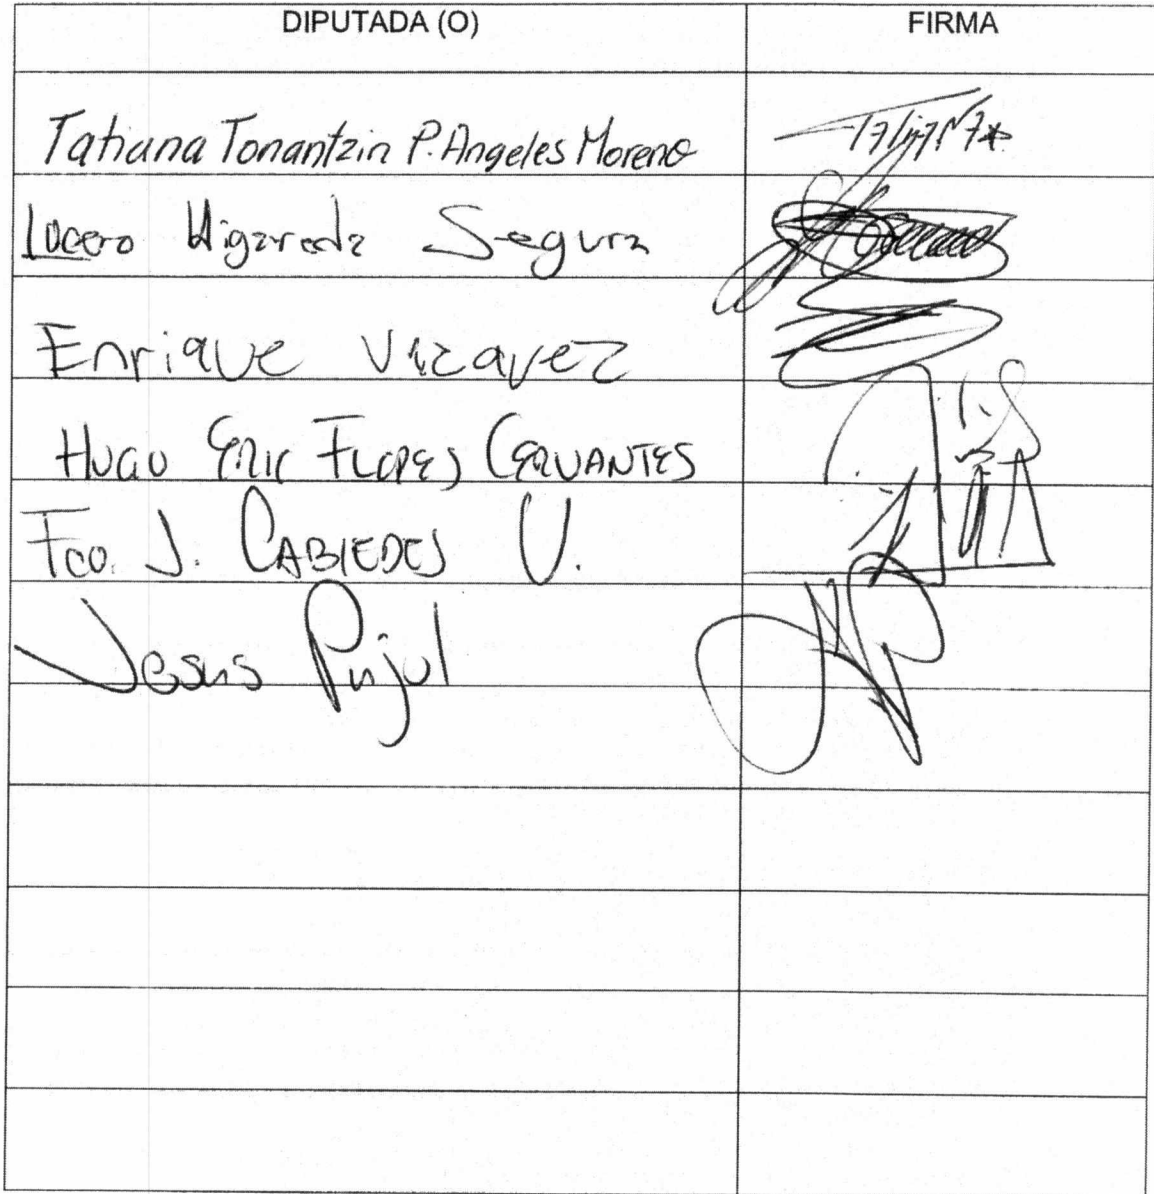 DIPUTADA (O) FIRMA
Tatiana Tonantzin P. Angeles Moreno
Lucero Higareda Segura
Enrique Vázquez
HUGO ERIC FLORES CERVANTES
Fco. J. CABIEDES U.
Jesus Pujol